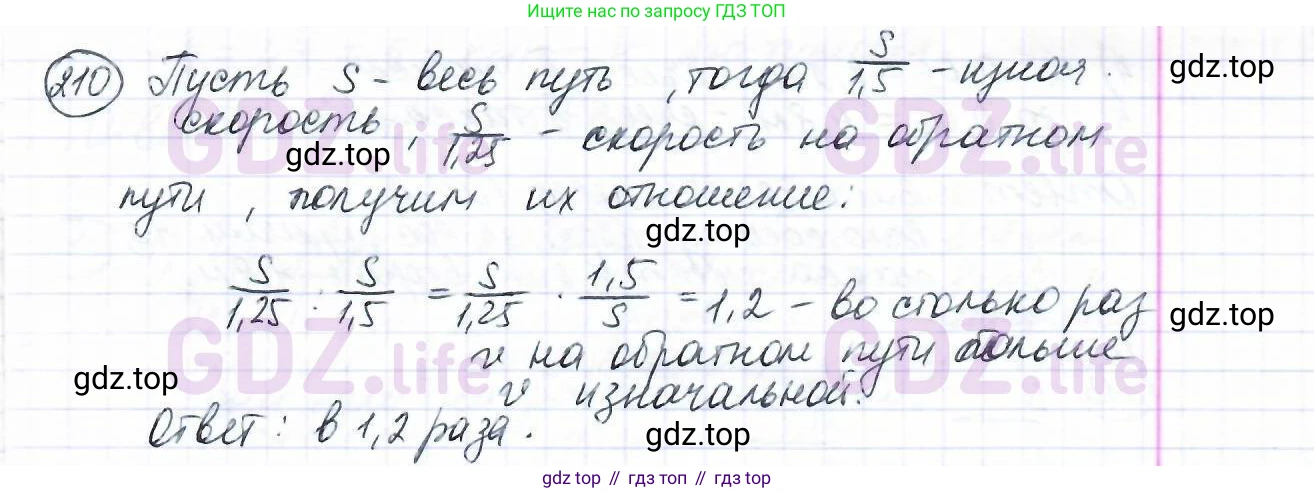 Ищите нас по запросу ГДЗ ТОП
210 Пусть S - весь путь, тогда S/1,5 - изнач.
gdz.top
скорость, S/1,25 - скорость на обратном
gdz.top
пути, получим их отношение:
gdz.top
S/1,25 : S/1,5 = S/1,25 · 1,5/S = 1,2 - во столько раз
gdz.top
v на обратном пути больше
gdz.top
v изначальной.
Ответ: в 1,2 раза.
gdz.top
GDZ.life
GDZ.life
GDZ.life
GDZ.life
gdz.top // гдз топ // gdz.top